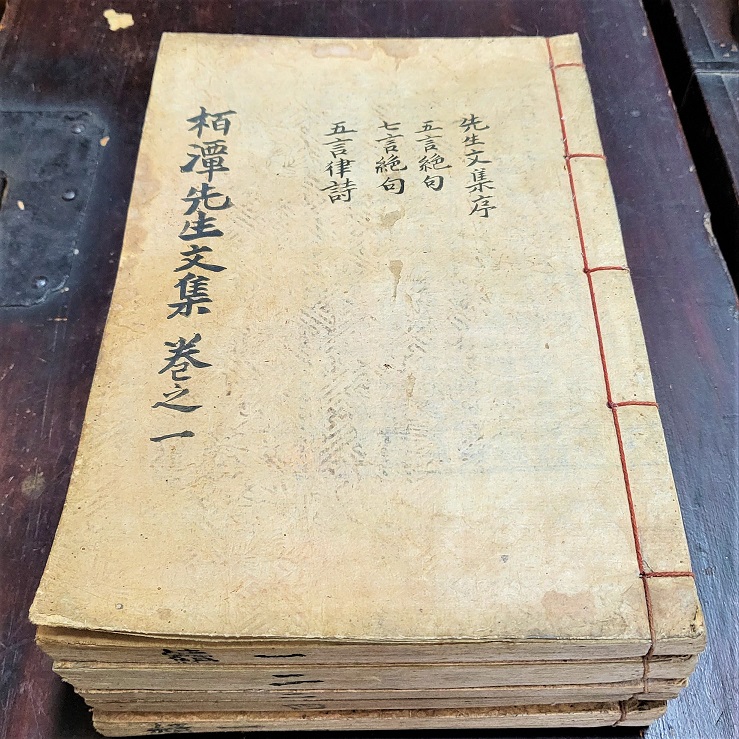 先生文集序
五言絶句
七言絶句
五言律詩
栢潭先生文集 卷之一
一
二